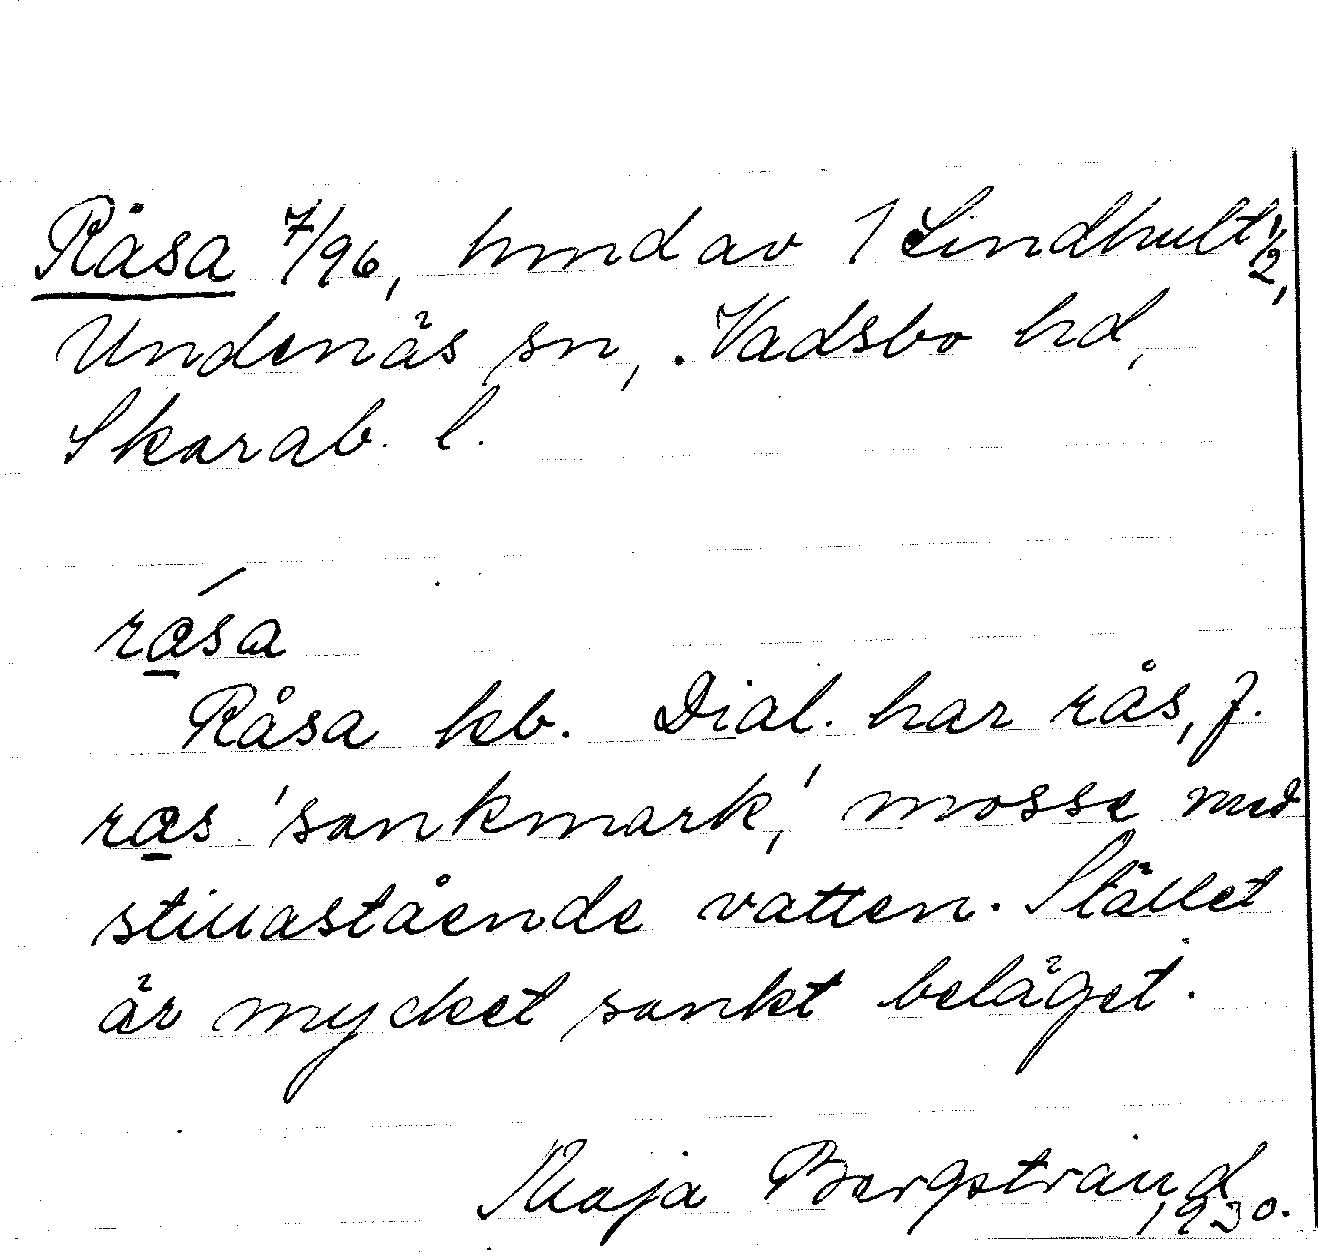 Råsa 7/96, hmd av 1 Lindhult 1/2,
Undenäs sn, Vadsbo hd,
Skarab. l.
ra̲´sa
Råsa kb. Dial. har rås, f.
ra̲s 'sankmark,' mosse med
stillastående vatten. Stället
är mycket sankt beläget.
Maja Bergstrand
1930.